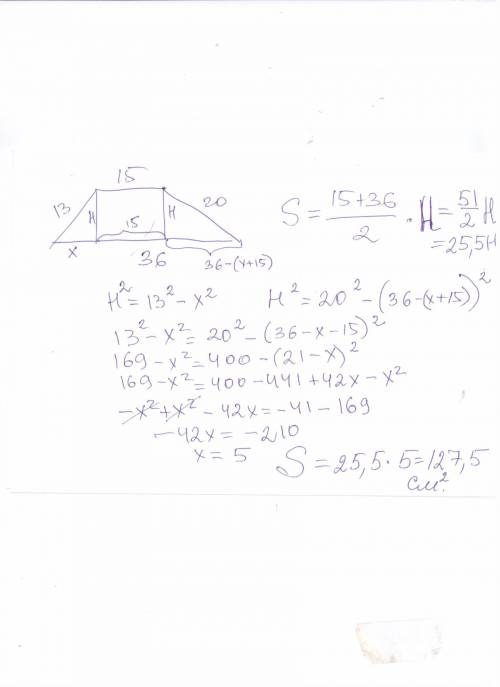 15
13 H H 20
15
x 36 36-(x+15)
S = (15+36)/2 · H = 51/2 H
= 25,5H
H² = 13² - x² H² = 20² - (36-(x+15))²
13² - x² = 20² - (36-x-15)²
169 - x² = 400 - (21-x)²
169 - x² = 400 - 441 + 42x - x²
-x² + x² - 42x = -41 - 169
-42x = -210
x = 5 S = 25,5 · 5 = 127,5
см².